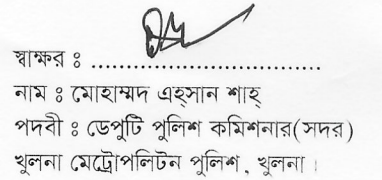 স্বাক্ষর ঃ ....................................
নাম ঃ মোহাম্মদ এহ্‌সান শাহ্
পদবী ঃ ডেপুটি পুলিশ কমিশনার(সদর)
খুলনা মেট্রোপলিটন পুলিশ, খুলনা।